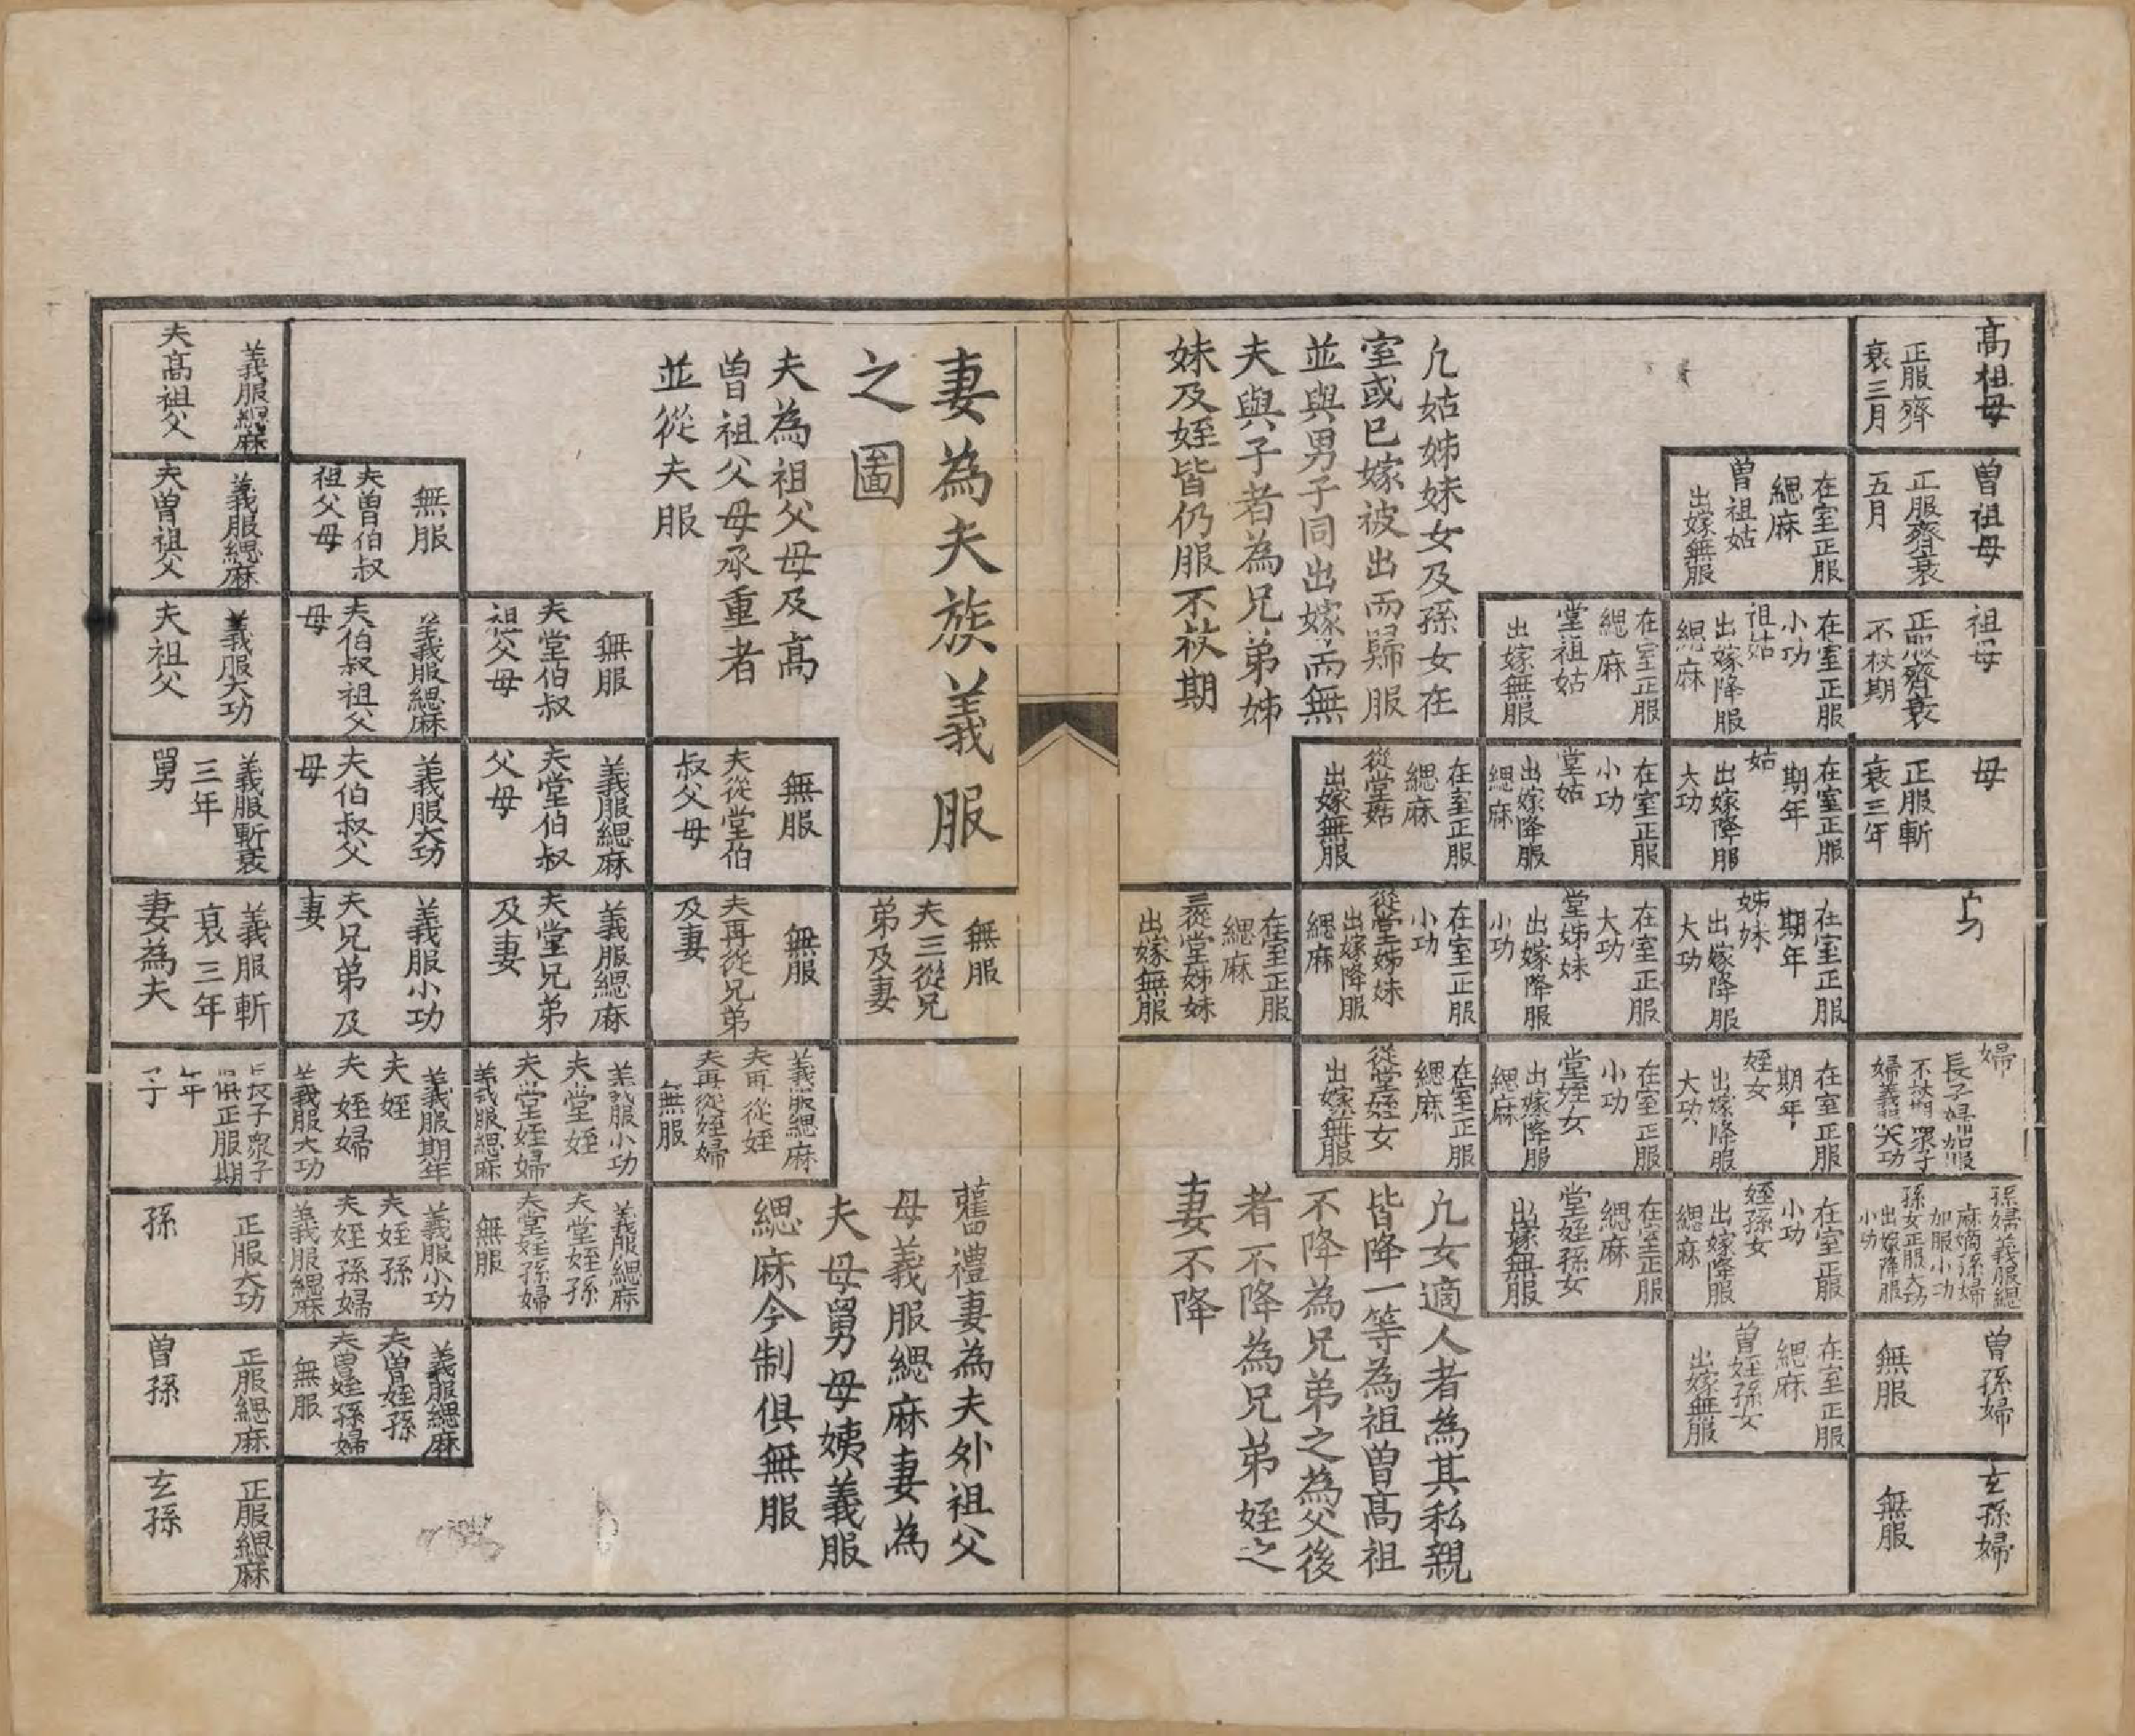 高祖母
正服齊
衰三月
曾祖母
正服齊衰
五月
在室正服
緦麻
曾祖姑
出嫁無服
祖母
正服齊衰
不杖期
在室正服
小功
祖姑
出嫁降服
緦麻
在室正服
緦麻
堂祖姑
出嫁無服
母
正服斬
衰三年
在室正服
期年
姑
出嫁降服
大功
在室正服
小功
堂姑
出嫁降服
緦麻
在室正服
緦麻
從堂姑
出嫁無服
在室正服
期年
姊妹
出嫁降服
大功
在室正服
大功
堂姊妹
出嫁降服
小功
在室正服
小功
從堂姊妹
出嫁降服
緦麻
在室正服
緦麻
三從堂姊妹
出嫁無服
婦
長子婦加服
不杖期衆子
婦義服大功
在室正服
期年
姪女
出嫁降服
大功
在室正服
小功
堂姪女
出嫁降服
緦麻
在室正服
緦麻
從堂姪女
出嫁無服
孫婦義服緦
麻嫡孫婦
加服小功
孫女正服大功
出嫁降服
小功
在室正服
小功
姪孫女
出嫁降服
緦麻
在室正服
緦麻
堂姪孫女
出嫁無服
曾孫婦
無服
在室正服
緦麻
曾姪孫女
出嫁無服
玄孫婦
無服
凢姑姊妹女及孫女在
室或已嫁被出而歸服
並與男子同出嫁而無
夫與子者為兄弟姊
妹及姪皆仍服不杖期
凢女適人者為其私親
皆降一等為祖曾高祖
不降為兄弟之為父後
者不降為兄弟姪之
妻不降
妻為夫族義服
之圖
夫為祖父母及高
曾祖父母承重者
並從夫服
無服
夫三從兄
弟及妻
舊禮妻為夫外祖父
母義服緦麻妻為
夫母舅母姨義服
緦麻今制俱無服
無服
夫從堂伯
叔父母
無服
夫再從兄弟
及妻
義服緦麻
夫再從姪
夫再從姪婦
無服
無服
夫堂伯叔
祖父母
義服緦麻
夫堂伯叔
父母
義服緦麻
夫堂兄弟
及妻
義服小功
夫堂姪
夫堂姪婦
義服緦麻
義服緦麻
夫堂姪孫
夫堂姪孫婦
無服
無服
夫曾伯叔
祖父母
義服緦麻
夫伯叔祖父
母
義服大功
夫伯叔父
母
義服小功
夫兄弟及
妻
義服期年
夫姪
夫姪婦
義服大功
義服小功
夫姪孫
夫姪孫婦
義服緦麻
義服緦麻
夫曾姪孫
夫曾姪孫婦
無服
義服緦麻
夫高祖父
義服緦麻
夫曾祖父
義服大功
夫祖父
義服斬衰
三年
舅
義服斬
衰三年
妻為夫
長子衆子
俱正服期
年
子
正服大功
孫
正服緦麻
曾孫
正服緦麻
玄孫